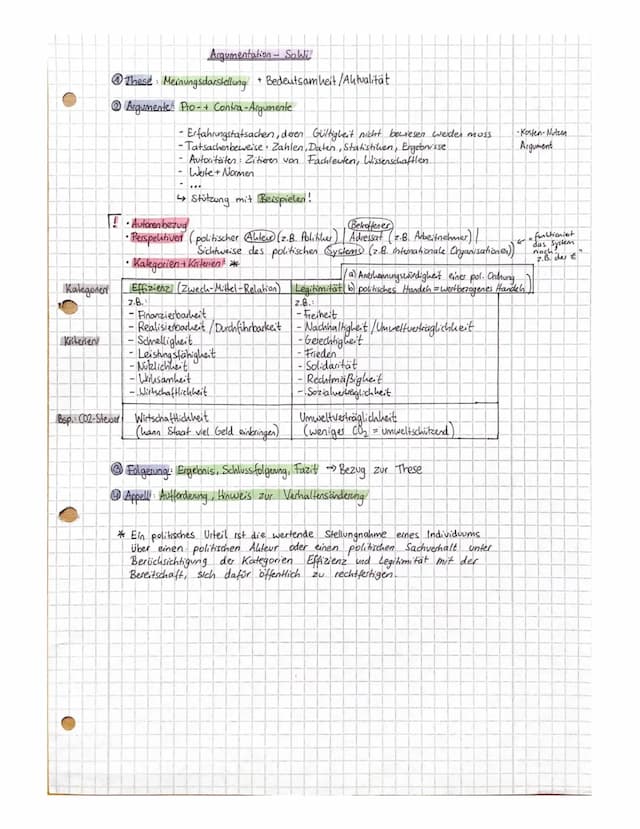 Argumentation - SoWi
① These: Meinungsdarstellung + Bedeutsamkeit/Aktualität
② Argumente: Pro- + Contra-Argumente
- Erfahrungstatsachen, deren Gültigkeit nicht bewiesen werden muss
- Kosten-Nutzen
Argument
- Tatsachenbeweise: Zahlen, Daten, Statistiken, Ergebnisse
- Autoritäten: Zitieren von Fachleuten, Wissenschaftlern
- Werte + Normen
- ...
↳ Stützung mit Beispielen!
! • Autorenbezug
Betroffener
• Perspektiven (politischer Akteur (z.B. Politiker) | Adressat (z.B. Arbeitnehmer) |
Sichtweise des politischen Systems (z.B. Internationale Organisationen))
← "funktioniert
das System
noch"
z.B. der €"
• Kategorien + Kriterien *
Kategorien
Effizienz (Zweck-Mittel-Relation)
Legitimität
(a) Anerkennungswürdigkeit einer pol. Ordnung
b) politisches Handeln = wertbezogenes Handeln)
Kriterien
z.B.:
- Finanzierbarkeit
- Realisierbarkeit / Durchführbarkeit
- Schnelligkeit
- Leistungsfähigkeit
- Nützlichkeit
- Wirksamkeit
- Wirtschaftlichkeit
z.B.:
- Freiheit
- Nachhaltigkeit / Umweltverträglichkeit
- Gerechtigkeit
- Frieden
- Solidarität
- Rechtmäßigkeit
- Sozialverträglichkeit
Bsp.: CO2-Steuer
Wirtschaftlichkeit
(kann Staat viel Geld einbringen)
Umweltverträglichkeit
(weniger CO₂ = umweltschützend)
③ Folgerung: Ergebnis, Schlussfolgerung, Fazit → Bezug zur These
④ Appell: Aufforderung, Hinweis zur Verhaltensänderung
* Ein politisches Urteil ist die wertende Stellungnahme eines Individuums
über einen politischen Akteur oder einen politischen Sachverhalt unter
Berücksichtigung der Kategorien Effizienz und Legitimität mit der
Bereitschaft, sich dafür öffentlich zu rechtfertigen.